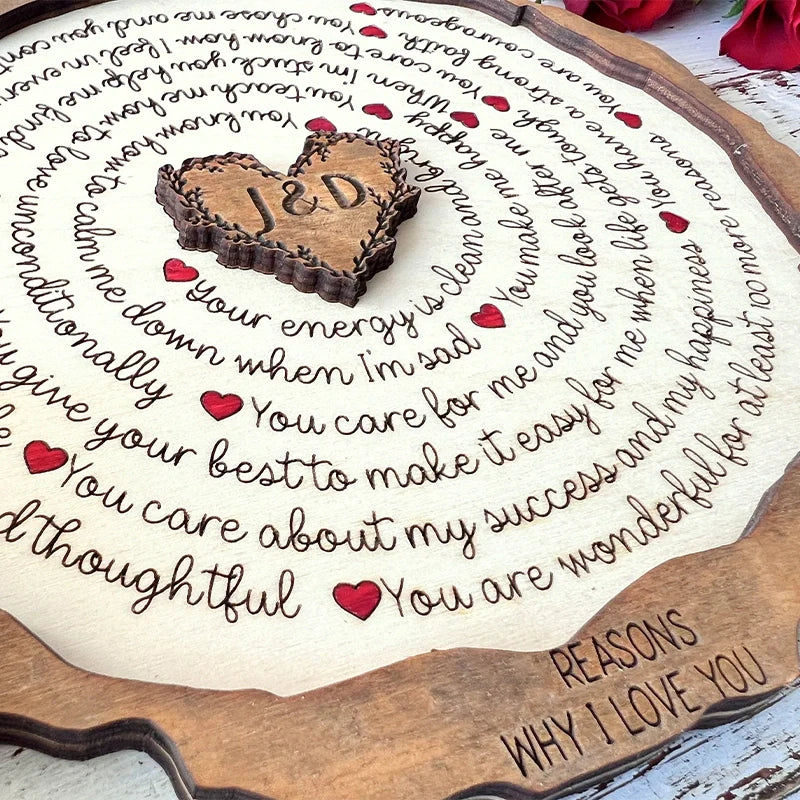 J & D
Your energy is clean and
You know how to calm me down when I'm sad
You make me happy
You teach me how to love unconditionally
You care for me and you look after me
When I'm stuck you help me find
You give your best to make it easy for me when life gets tough
You care to know how I feel in
You care about my success and my happiness
You have a strong faith
You chose me and you
thoughtful
You are wonderful for at least 100 more reasons
You are courageous
REASONS
WHY I LOVE YOU